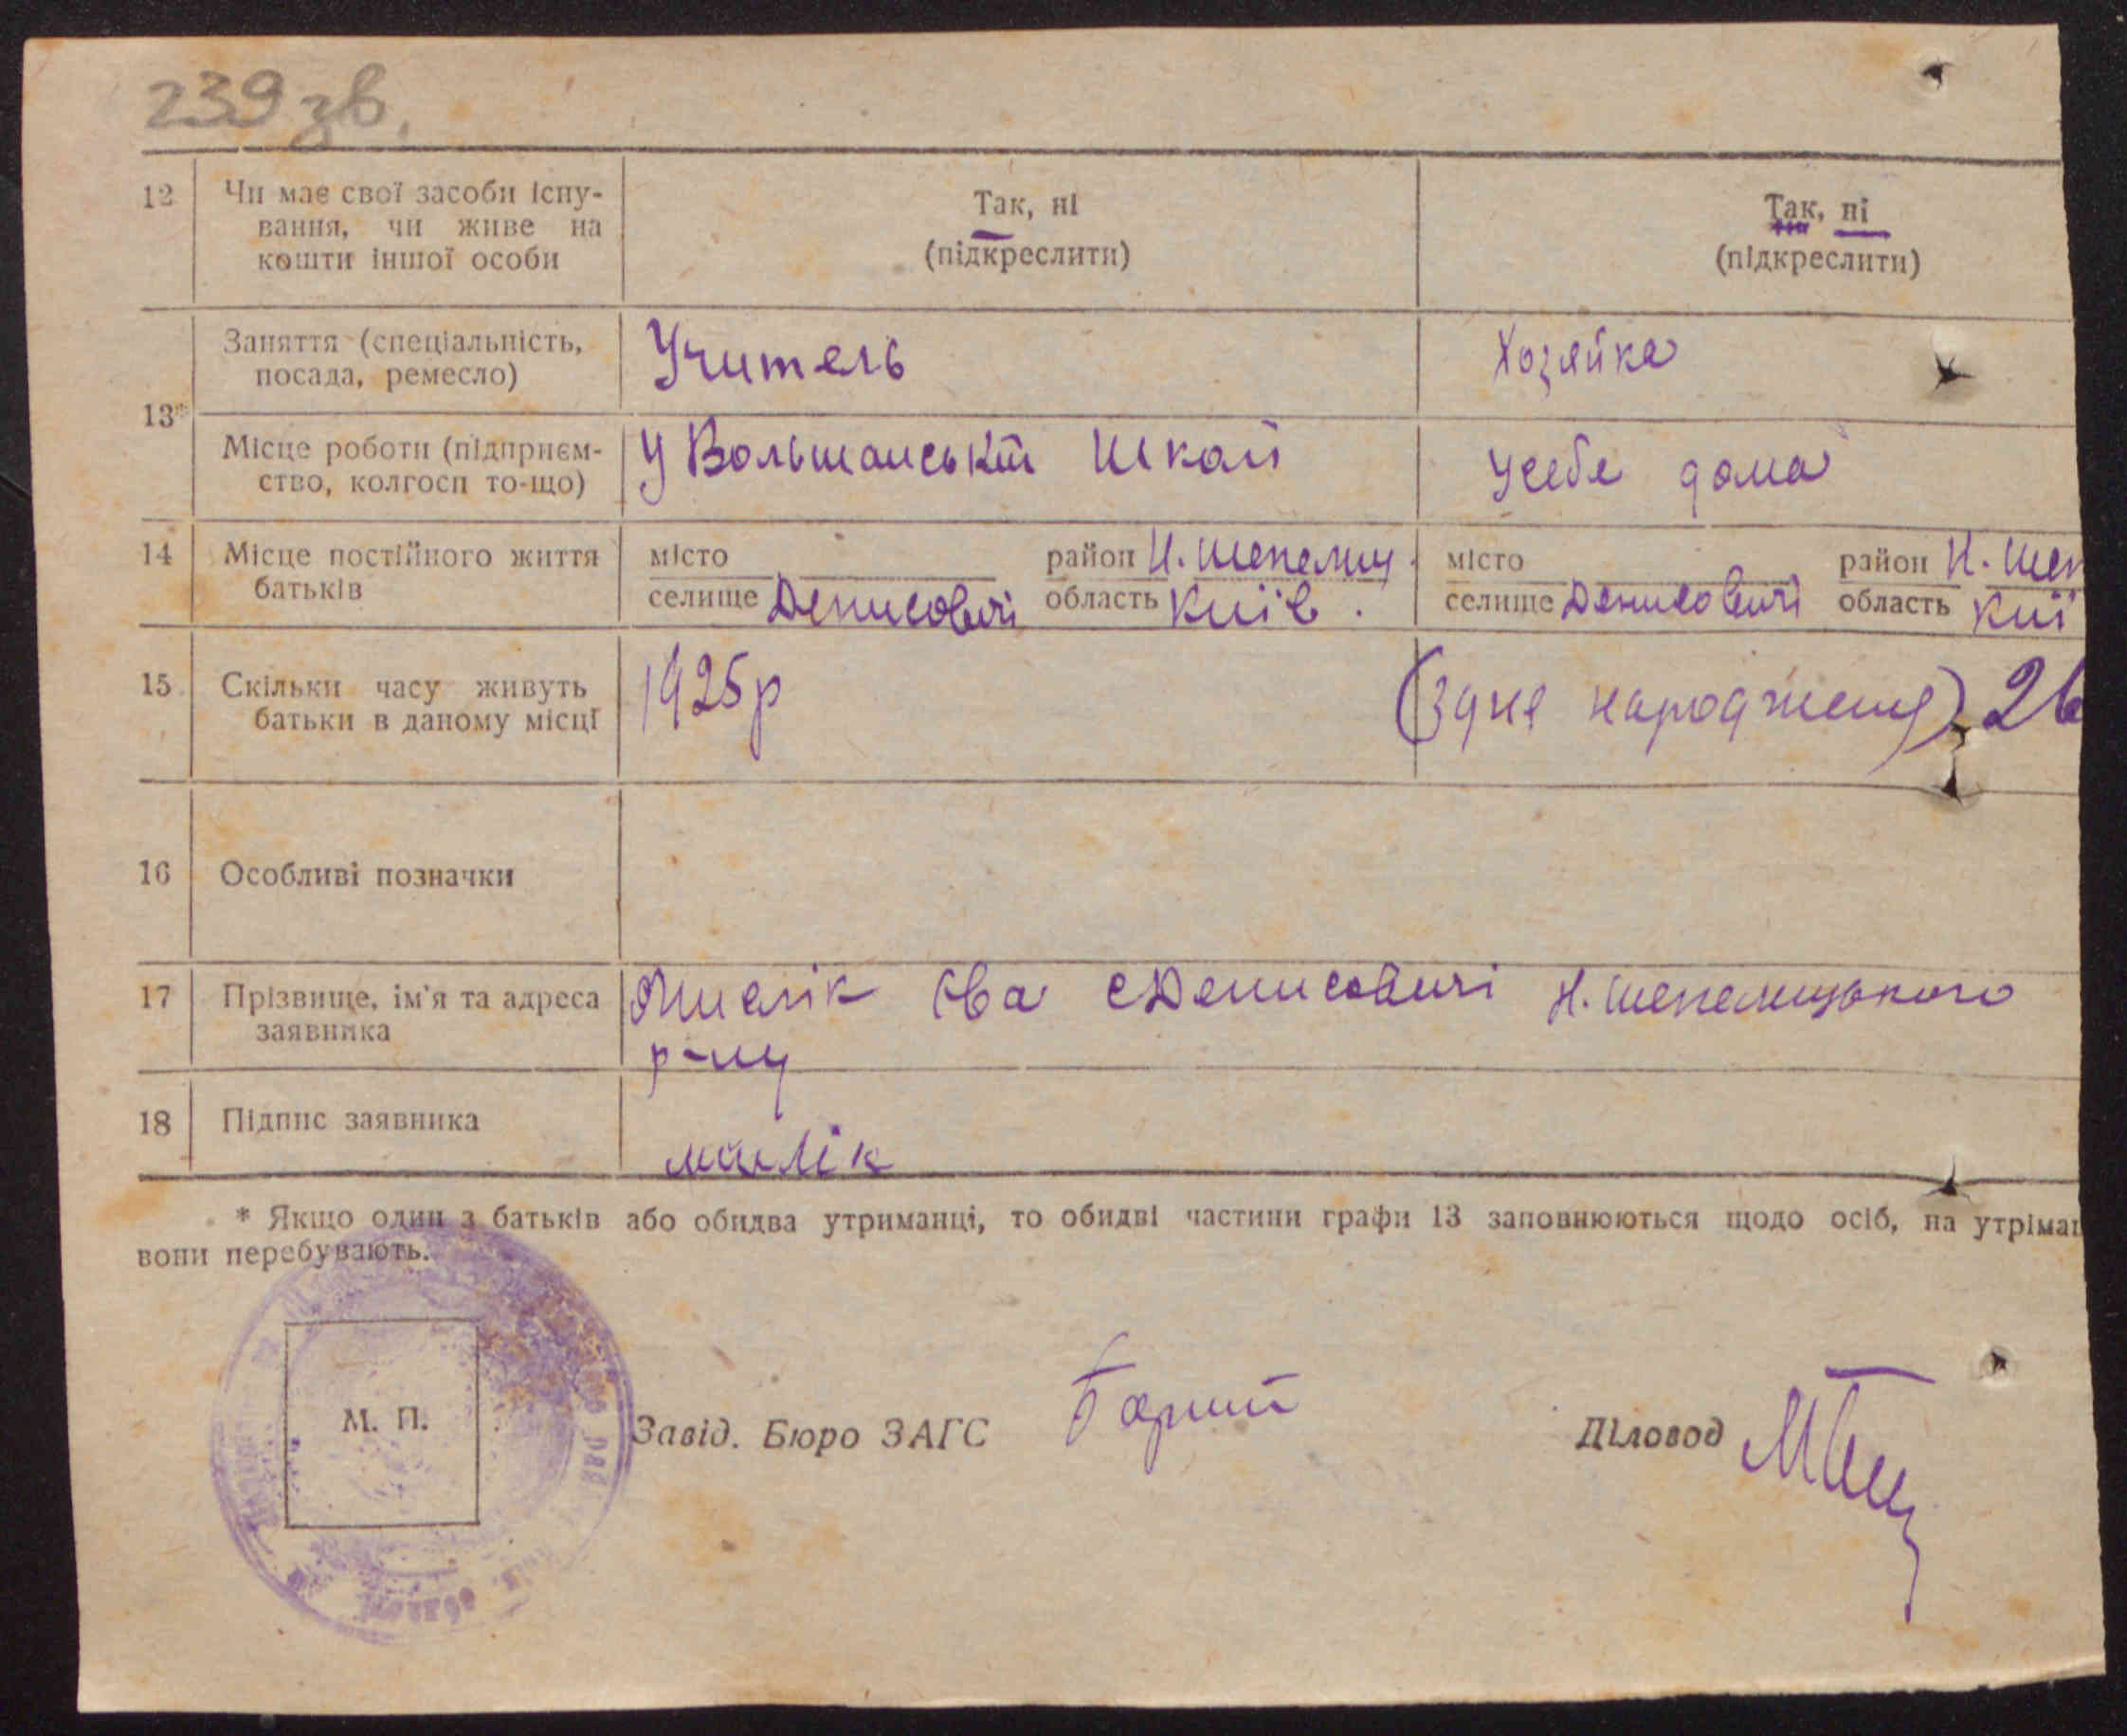 239 зв.
12 Чи має свої засоби існу- Так, ні Так, ні
вання, чи живе на (підкреслити) (підкреслити)
кошти іншої особи
Заняття (спеціальність, Учитель Хозяйка
посада, ремесло)
13*
Місце роботи (підприєм- У Вольшанській школі у себе дома
ство, колгосп то-що)
14 Місце постійного життя місто район Н. Шепелич. місто район Н. Шеп
батьків селище Денисовичі область Київ. селище Денисовичі область Киї
15 Скільки часу живуть 1925р (З дня народження)
батьки в даному місці
16 Особливі позначки
17 Прізвище, ім'я та адреса Єва с Денисовичі Н. Шепелицького
заявника р-ну
18 Підпис заявника мілік
* Якщо один з батьків або обидва утриманці, то обидві частини графи 13 заповнюються щодо осіб, на утріман
вони перебувають.
М. П.
Завід. Бюро ЗАГС Діловод